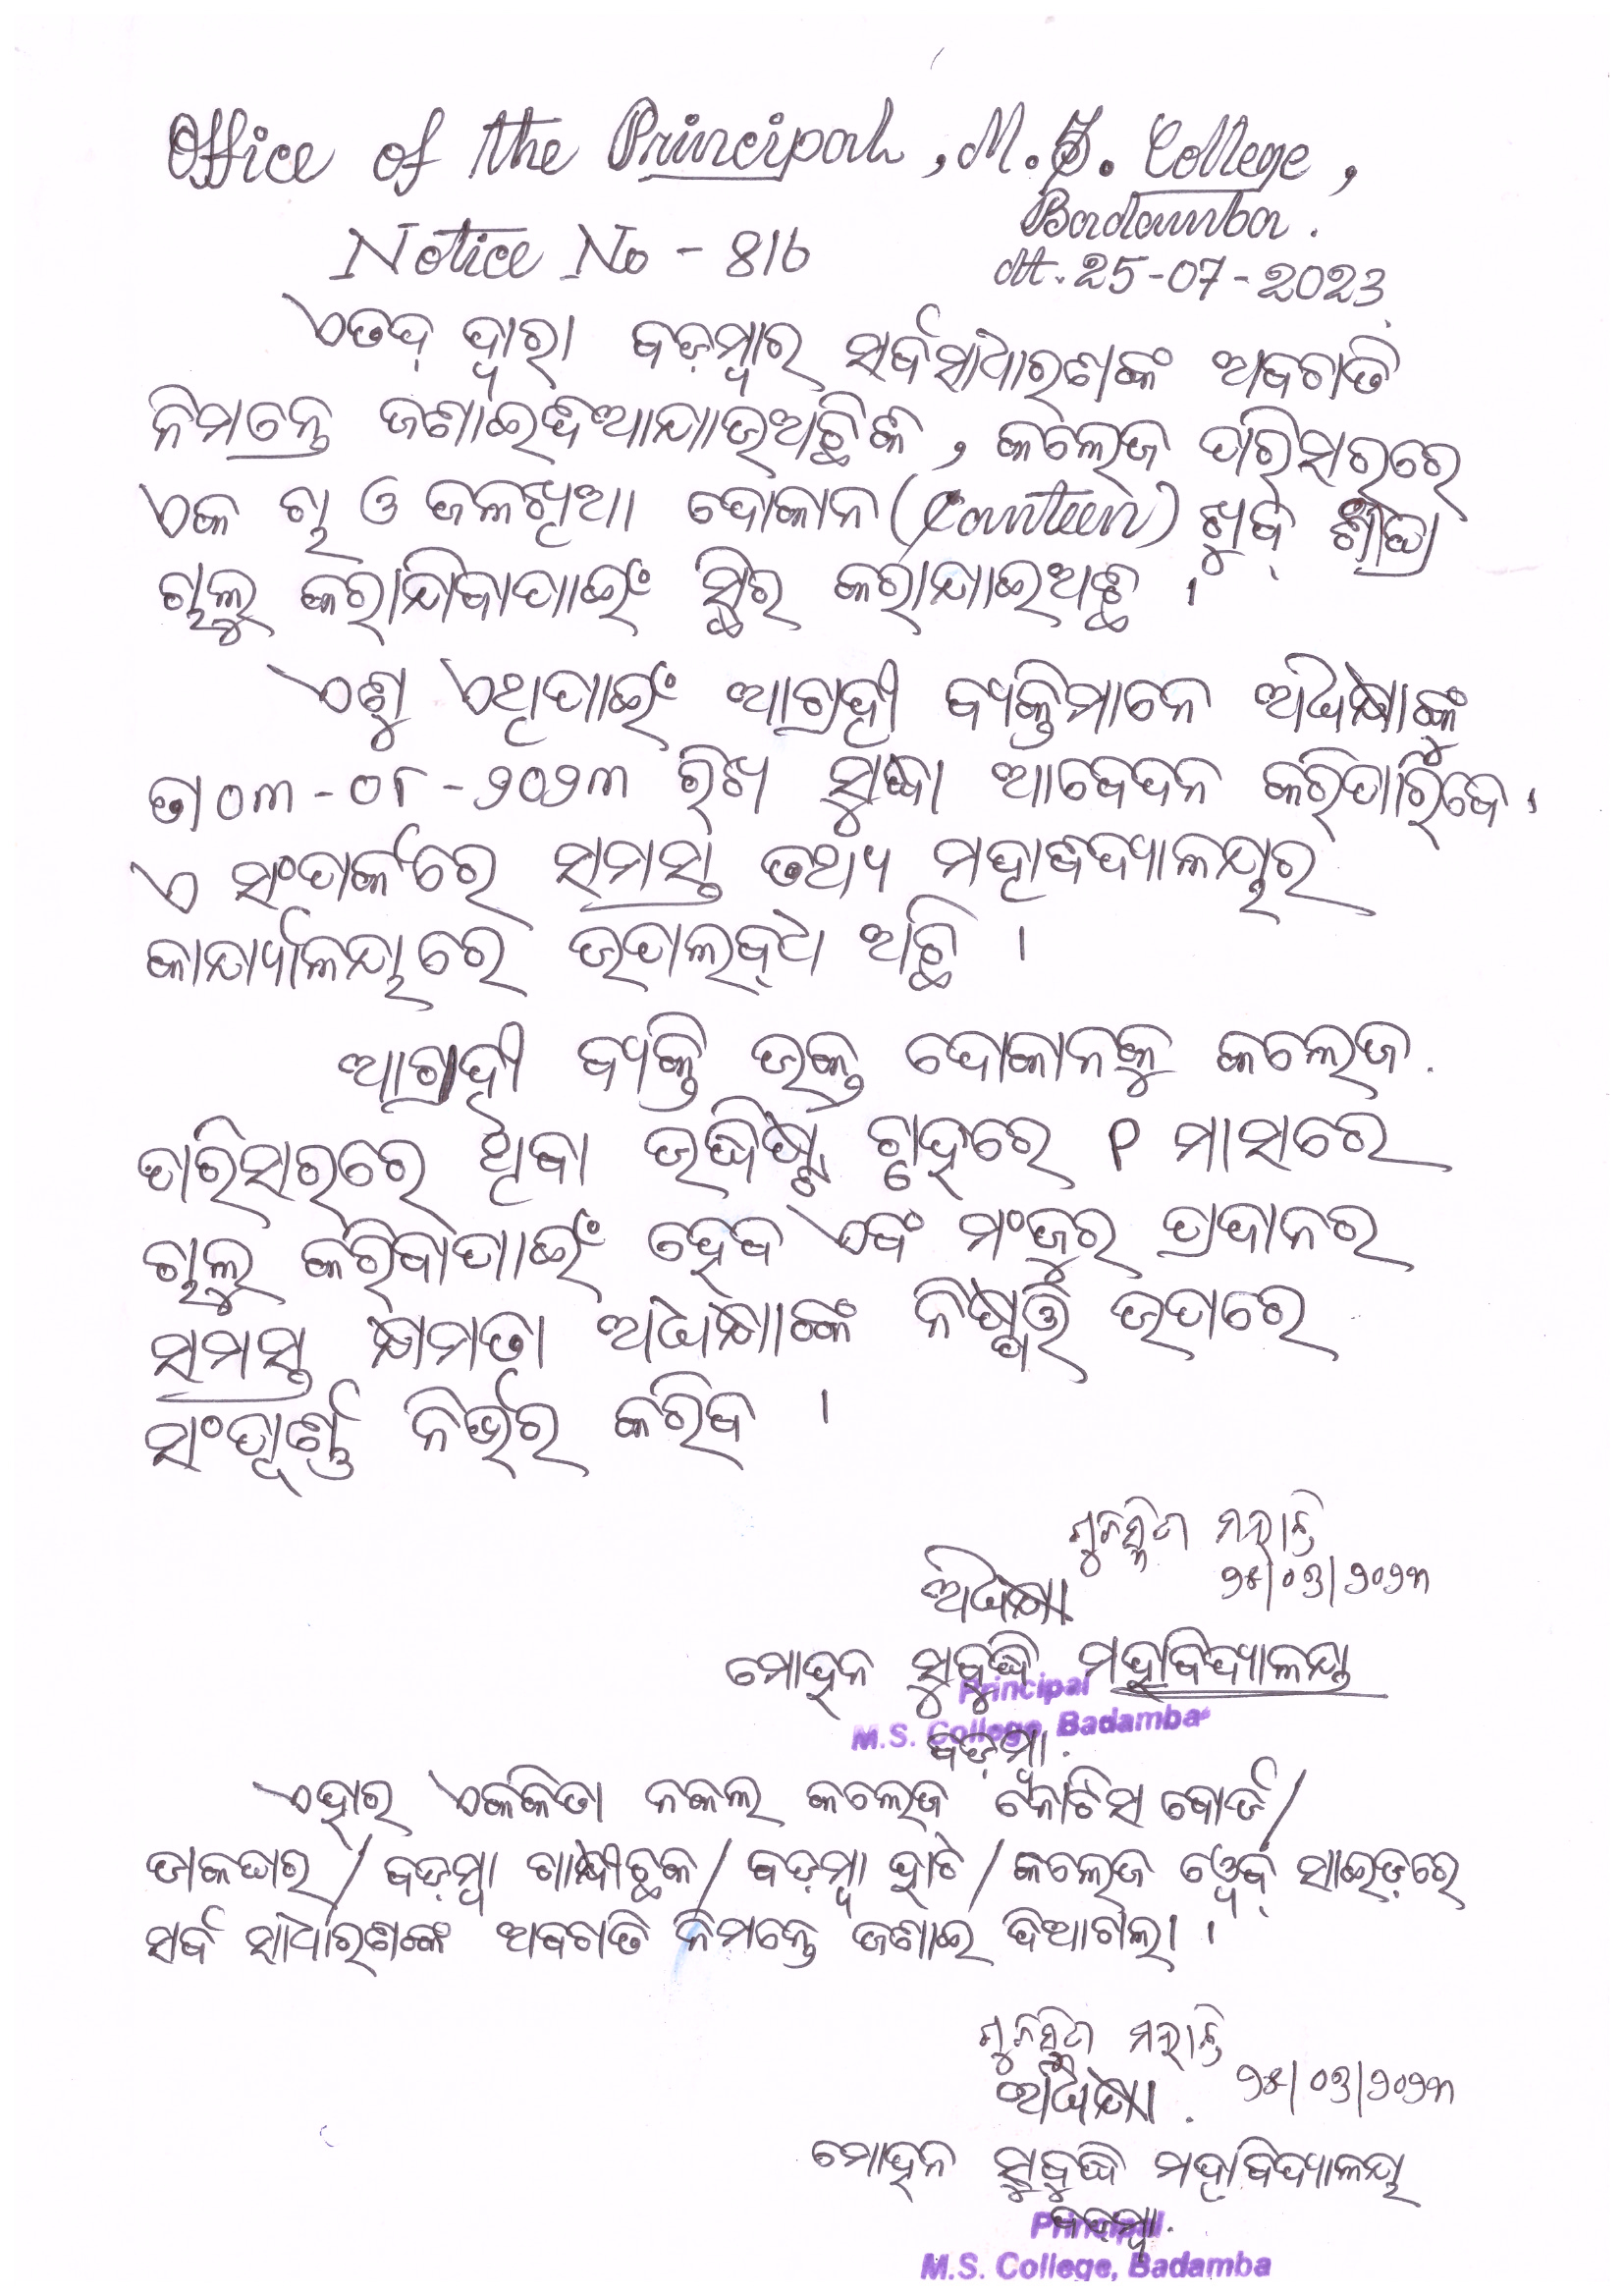 Office of the Principal, M.S. College,
Badamba.
Notice No - 816
dt. 25-07-2023
ଏତଦ୍ ଦ୍ଵାରା ବଡ଼ମ୍ବାର ସର୍ବସାଧାରଣଙ୍କ ଅବଗତି
ନିମନ୍ତେ ଜଣାଇଦିଆଯାଉଅଛିକି, କଲେଜ ପରିସରରେ
ଏକ ଚା ଓ ଜଳଖିଆ ଦୋକାନ (Canteen) ଖୁବ୍ ଶୀଘ୍ର
ଚାଲୁ କରାଯିବାପାଇଁ ସ୍ଥିର କରାଯାଇଅଛି ।
ଏଣୁ ଏଥିପାଇଁ ଆଗ୍ରହୀ ବ୍ୟକ୍ତିମାନେ ଅଧ୍ୟକ୍ଷାଙ୍କୁ
ତା ୦୩-୦୮-୨୦୨୩ ରିଖ ସୁଦ୍ଧା ଆବେଦନ କରିପାରିବେ ।
ଏ ସଂପର୍କରେ ସମସ୍ତ ତଥ୍ୟ ମହାବିଦ୍ୟାଳୟର
କାର୍ଯ୍ୟାଳୟରେ ଉପଲବ୍ଧ ଅଛି ।
ଆଗ୍ରହୀ ବ୍ୟକ୍ତି ଉକ୍ତ ଦୋକାନକୁ କଲେଜ
ପରିସରରେ ଥିବା ଉଦ୍ଧିଷ୍ଟ ଗୃହରେ ୧ ମାସରେ
ଚାଲୁ କରିବାପାଇଁ ହେବ ଏବଂ ମଂଜୁର ପ୍ରଦାନର
ସମସ୍ତ କ୍ଷମତା ଅଧ୍ୟକ୍ଷାଙ୍କ ନିଷ୍ପତ୍ତି ଉପରେ
ସଂପୂର୍ଣ୍ଣ ନିର୍ଭର କରିବ ।
ମହାନ୍ତି
୨୫/୦୭/୨୦୨୩
ଅଧ୍ୟକ୍ଷା
ମୋହନ ସୁବୁଦ୍ଧି ମହାବିଦ୍ୟାଳୟ
Principal
M.S. College, Badamba
ବଡ଼ମ୍ବା.
ଏହାର ଏକକିତା ନକଲ କଲେଜ ନୋଟିସ ବୋର୍ଡ/
ଡାକଘର/ବଡ଼ମ୍ବା ଗାନ୍ଧୀଚ୍ଛକ/ବଡ଼ମ୍ବା ହାଟ/କଲେଜ ଓ୍ଵେବ୍ ସାଇଡ଼ରେ
ସର୍ବ ସାଧାରଣଙ୍କ ଅବଗତି ନିମନ୍ତେ ଜଣାଇ ଦିଆଗଲା ।
ମହାନ୍ତି
୨୫/୦୭/୨୦୨୩
ଅଧ୍ୟକ୍ଷା.
ମୋହନ ସୁବୁଦ୍ଧି ମହାବିଦ୍ୟାଳୟ
ବଡ଼ମ୍ବା.
Principal
M.S. College, Badamba